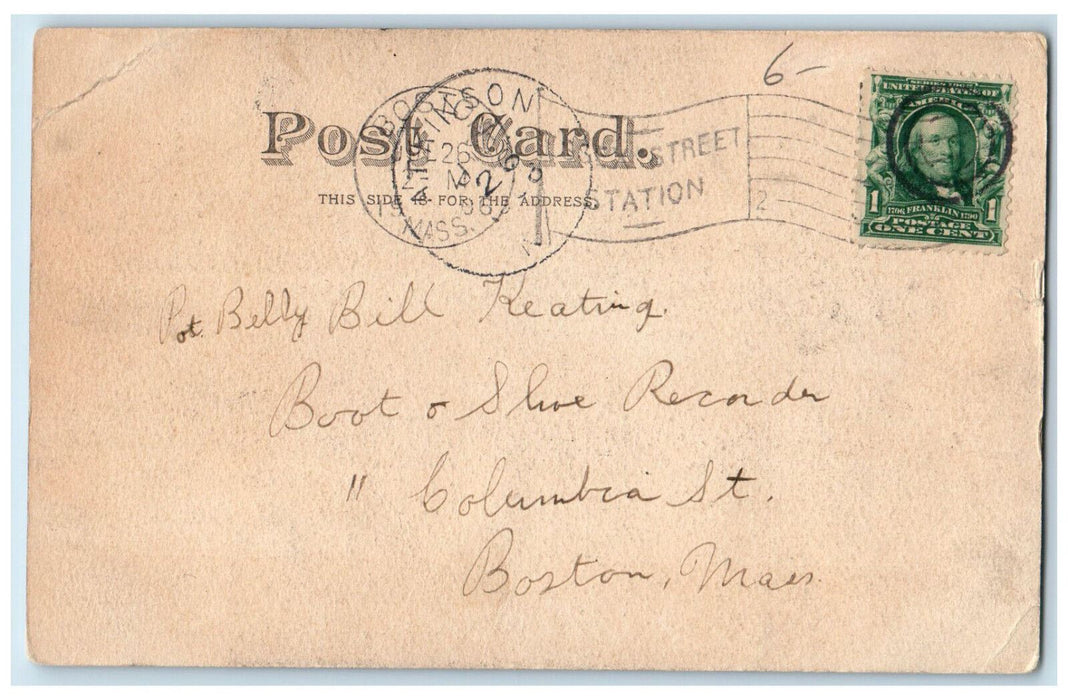 6-
SERIES 1902
UNITED STATES OF
AMERICA
1
1706 FRANKLIN 1790
1
POSTAGE
ONE CENT
BOSTON
26
MASS.
STREET
STATION
2
Post Card.
THIS SIDE IS FOR THE ADDRESS.
Pot Belly Bill Keating.
Boot & Shoe Recorder
" Columbia St.
Boston, Mass